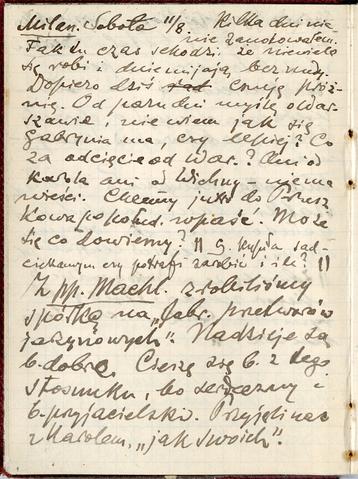 Milan. Sobota 11/8 Kilka dni nie
nie zanotowałem.
Tak tu czas schodzi że niewiele
się robi i dni mijają bez nudy.
Dopiero dziś czuję próż-
nię. Od paru dni myślę o War-
szawie, nie wiem jak się
Gabrynia ma, czy lepiej? Co
za odcięcie od War.? Ani od
Karola ani od Wichny – niema
wieści. Chcemy jutro do Prusz
kowa po połud. wpaść. Może
się co dowiemy?
ciekawym czy potrafi zarobić i ile?
Z pp. Machl. zrobiliśmy
spółkę na „Fabr. przetworów
jarzynowych". Nadzieje są
b. dobre. Cieszę się b. z tego
stosunku, bo serdeczny i
b. przyjacielski. Przyjęli nas
z Karolem, „jak swoich".